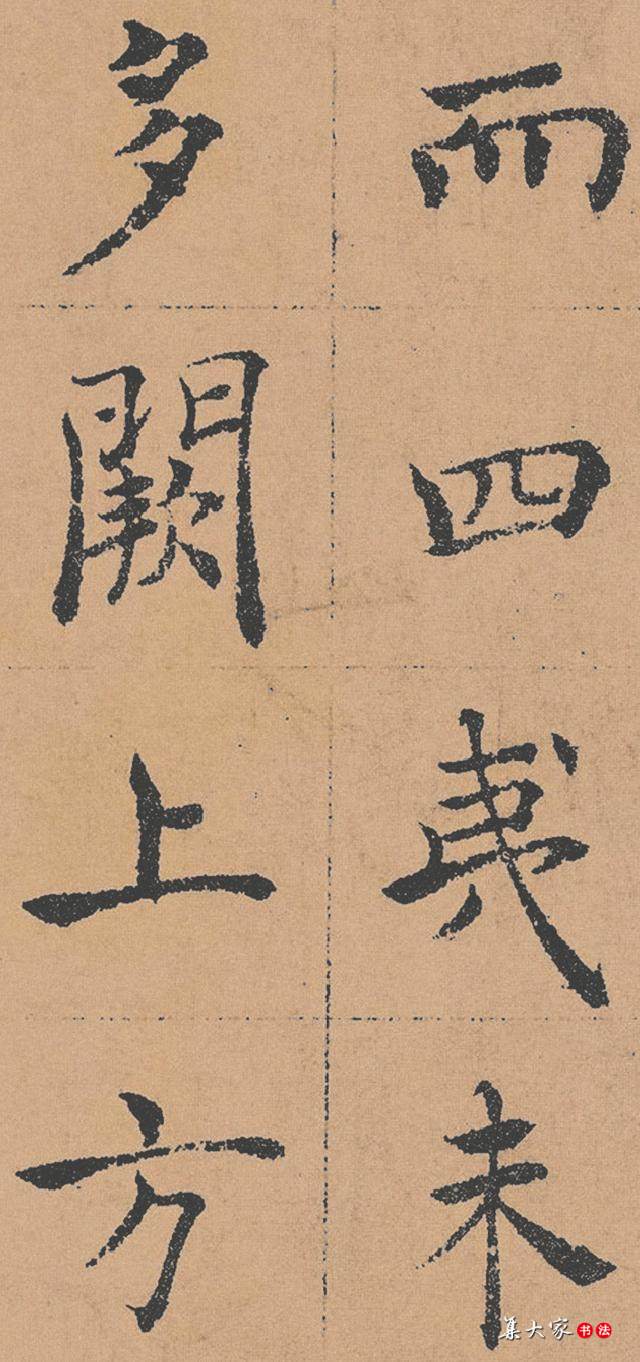 而四夷未
多闕上方
集大家 书法